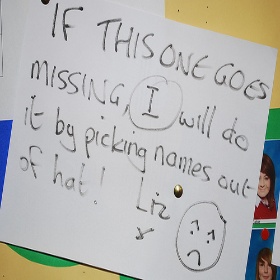 IF THIS ONE GOES
MISSING, I will do
it by picking names out
of hat! Liz
x